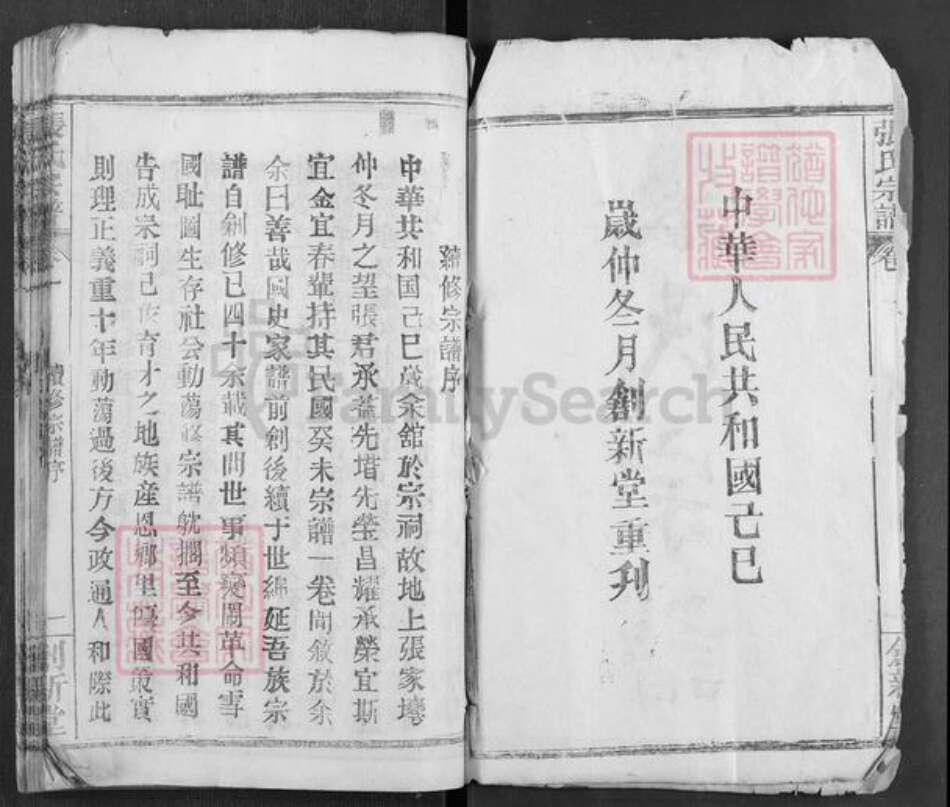 張氏宗譜 卷
中華人民共和國己巳
歲仲冬月創新堂重刋
續修宗譜序
中華共和国己巳歲余舘於宗祠故地上張家塆
仲冬月之望張君承益先堦先瑩昌耀承榮宜斯
宜金宜春輩持其民國癸未宗譜一卷問敘於余
余曰善哉國史家譜前創後續于世綿延吾族宗
譜自創修已四十余載其間世事頻變鬧革命雪
國耻圖生存社会動蕩修宗譜躭擱至今共和國
告成宗祠已作育才之地族産恩鄉里國策實
則理正義重十年動蕩過後方今政通人和際此
續修宗譜序
二
創新堂
FamilySearch